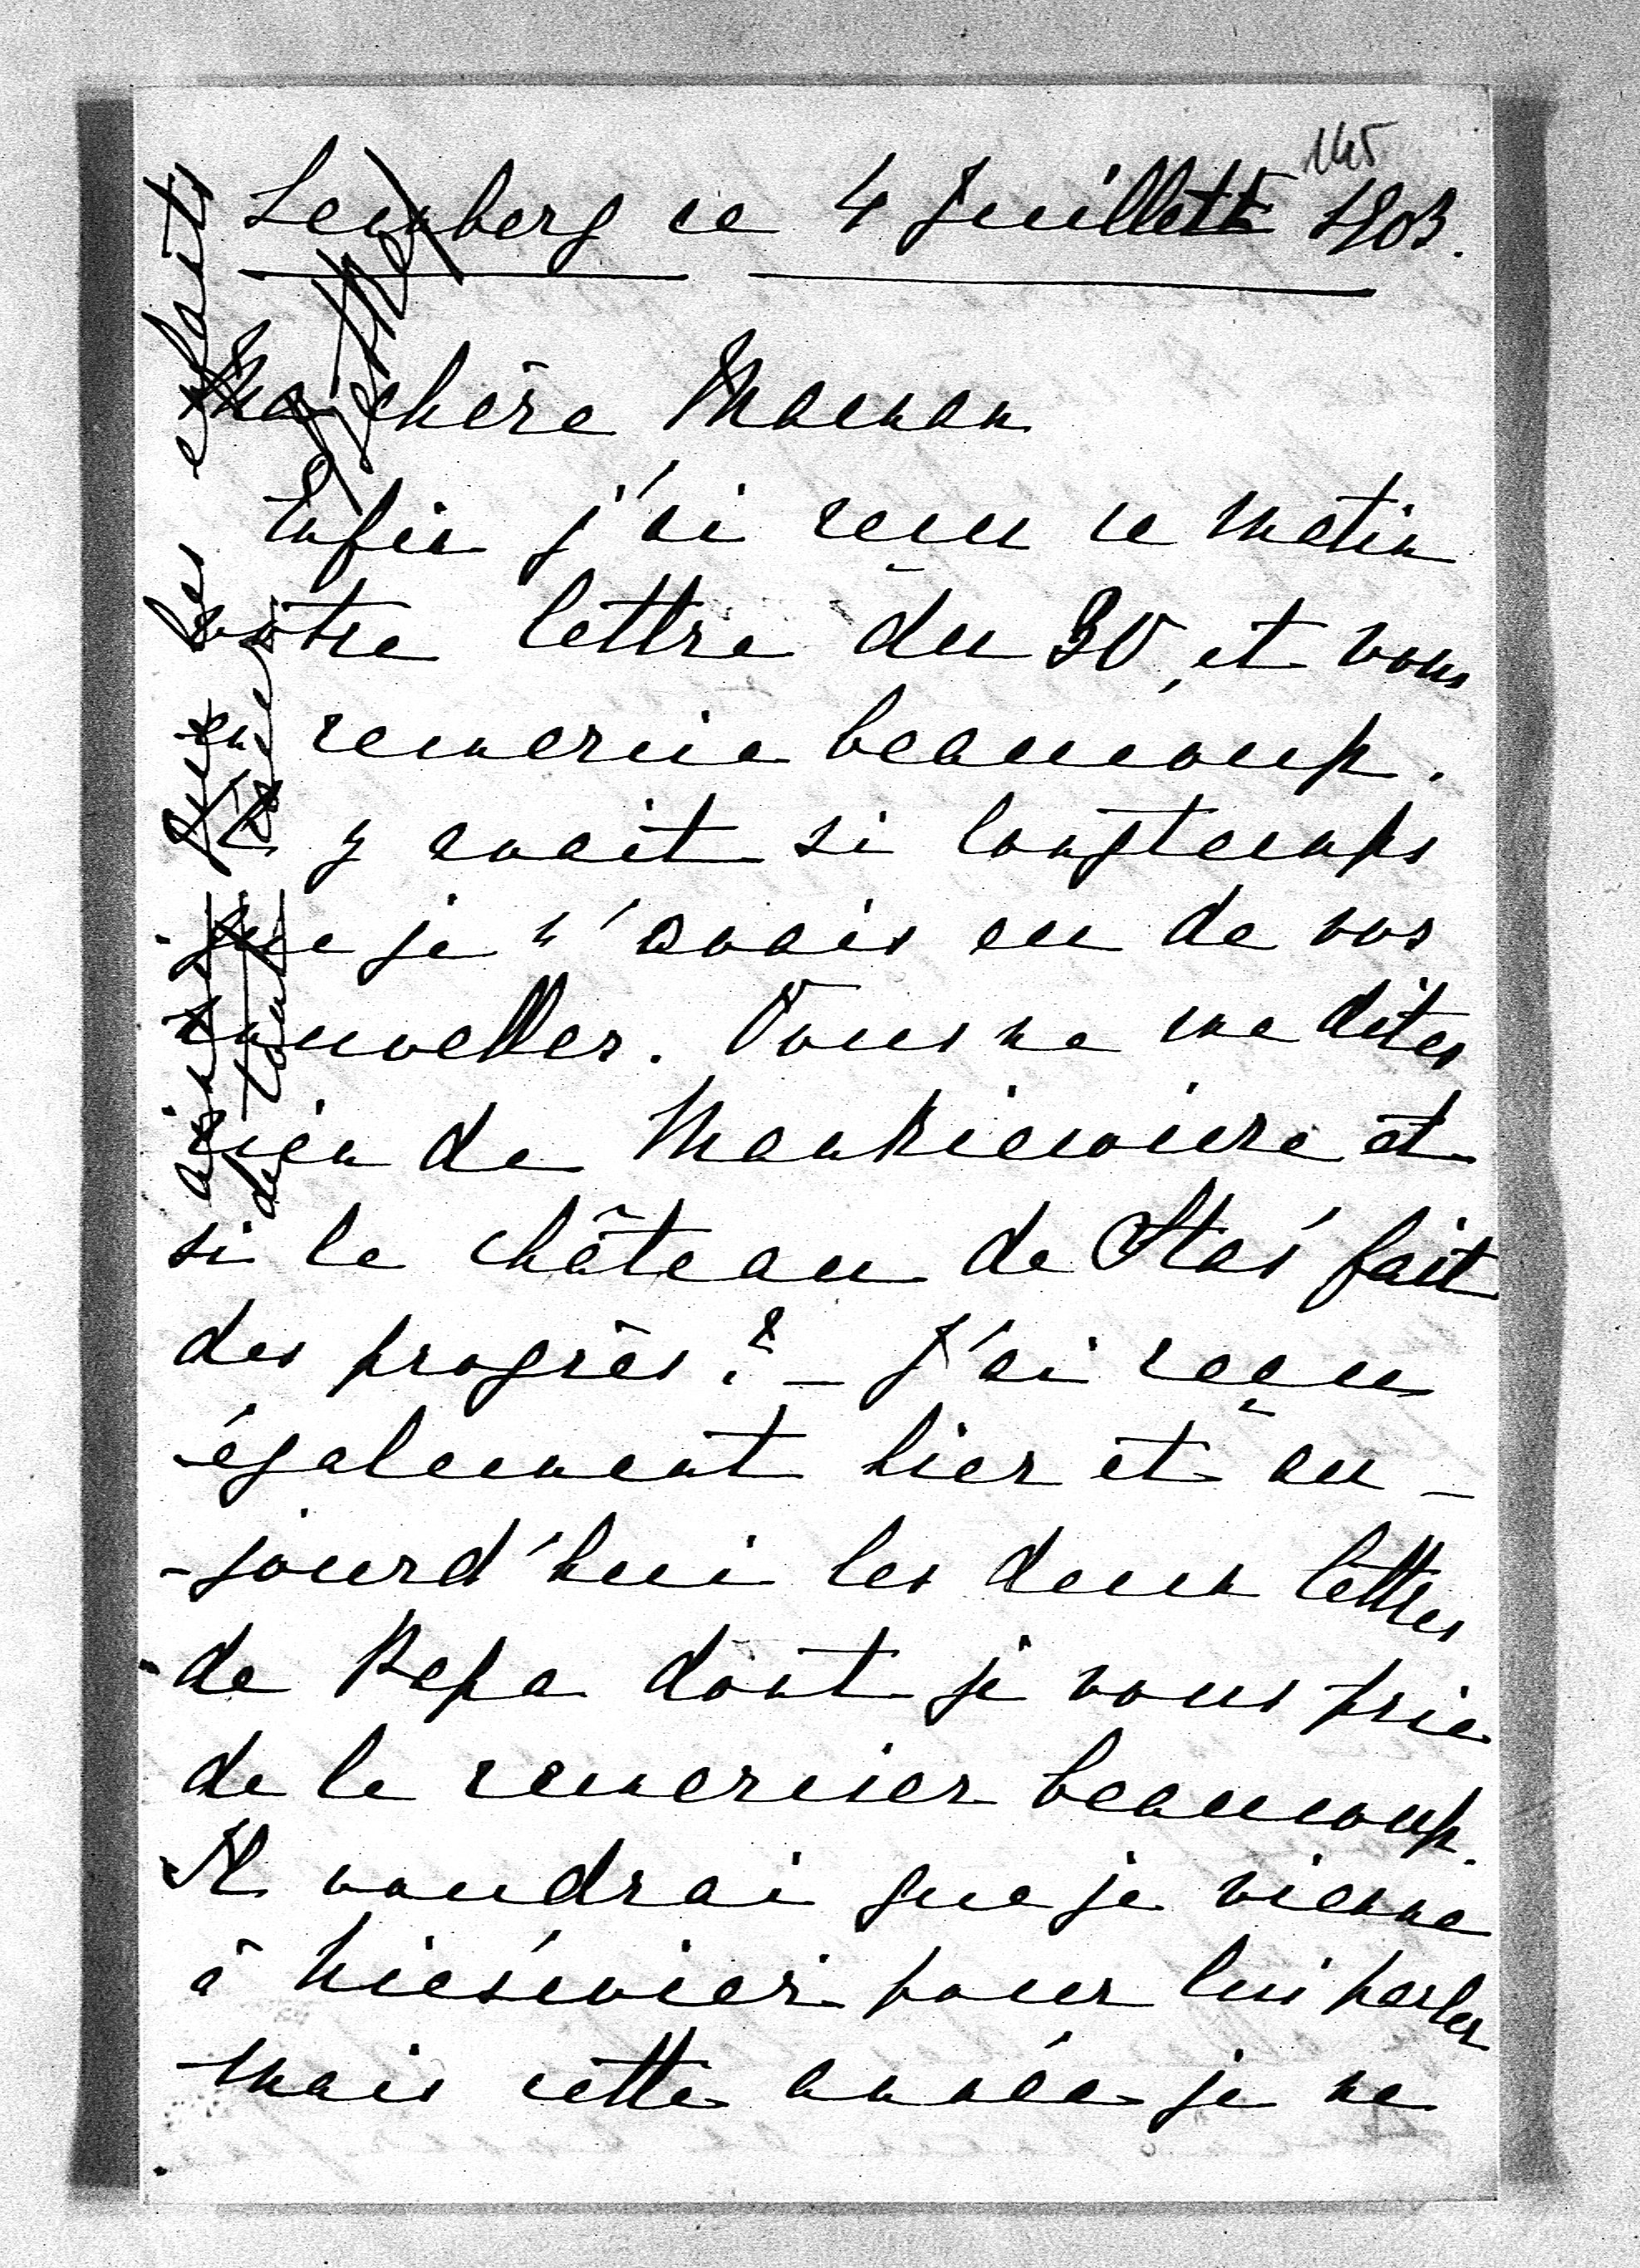 145
Lemberg ce 4 Juillett 1903.
Ma chère Maman
Enfin j'ai reçu ce matin
votre lettre du 30, et vous
en remercie beaucoup.
Il y avait si longtemps
que je n'avais eu de vos
nouvelles. Vous ne me dites
rien de Mankiewicze et
si le château de Staś fait
des progrès? - J'ai reçu
également hier et au-
-jourd'hui les deux lettres
de Papa dont je vous prie
de le remercier beaucoup.
Il voudrai que je vienne
à Nieśwież pour lui parler
mais cette année je ne
ainsi que les enfants
de tout